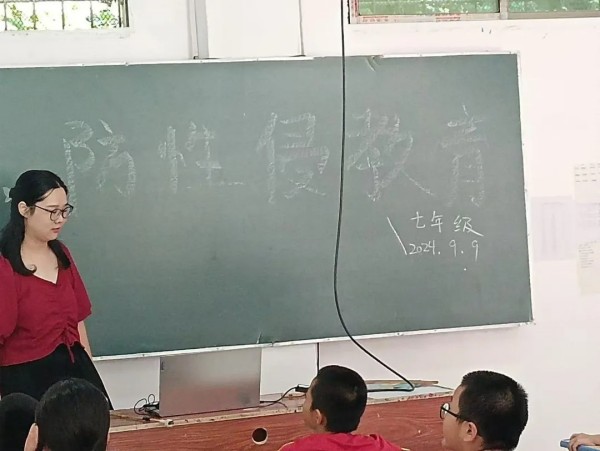 防性侵教育
七年级
2024.9.9